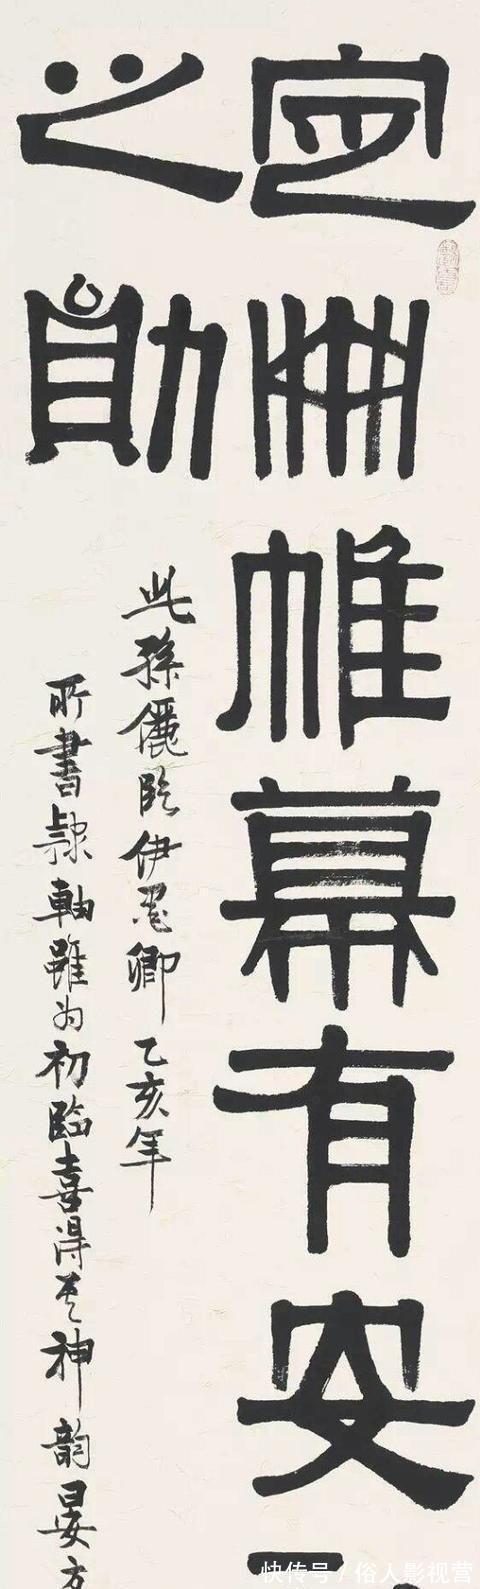 定冊帷幕有安
之勛
此孫儷臨伊墨卿乙亥年
所書隸軸雖为初臨喜得其神韵晏方
快传号/俗人影视营